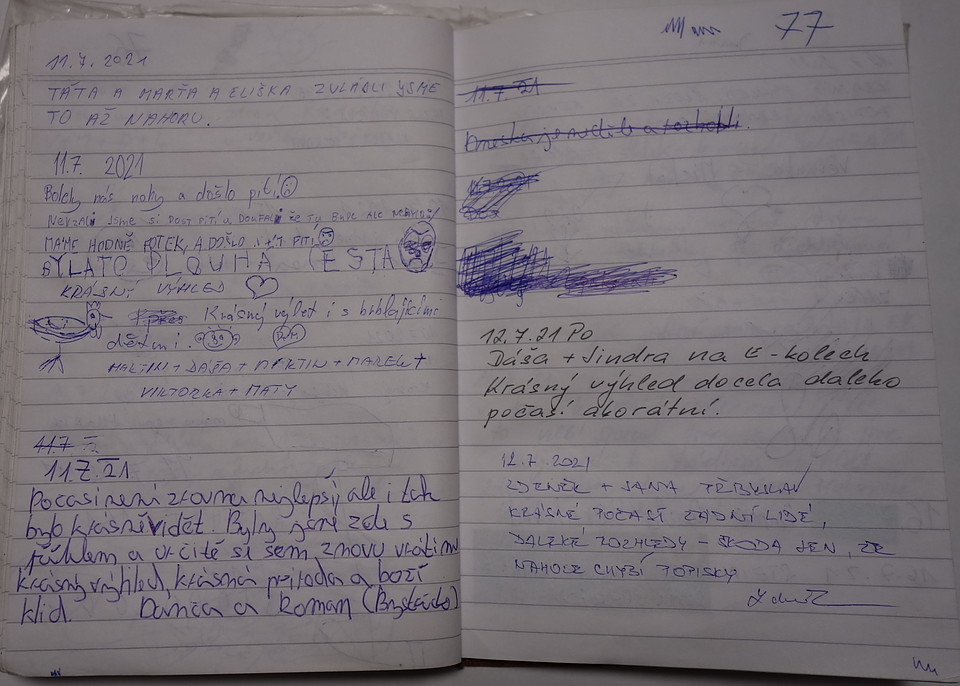 11.7. 2021
TÁTA A MARŤA A ELIŠKA ZVLÁDLI JSME
TO AŽ NAHORU.
11.7. 2021
Bolely nás nohy a došlo pití
NEVZALI JSME SI DOST PITÍ A DOUFALI ŽE TU BUDE ALE
MÁME HODNĚ FOTEK, A DOŠLO PITÍ
BYLA TO DLOUHÁ CESTA
KRÁSNÝ VÝHLED
Krásný výlet i s brblajícími
dětmi.
MARTIN + DÁŠA + MARTIN + MAREK +
VIKTORKA + MATY
11.7
11.7.21
Počasí není zrovna nejlepší, ale i tak
bylo krásně vidět. Byly jsme zde s
a určitě se sem znovu vrátíme
krásný výhled, krásná příroda a boží
klid. Danča a Roman
77
11.7. 21
Dneska je neděle a
12.7.21 Po
Dáša + Jindra na E-kolech
Krásný výhled docela daleko
počasí akorátní.
12.7.2021
ZDENĚK + JANA
KRÁSNÉ POČASÍ ŽÁDNÍ LIDÉ,
DALEKÉ ROZHLEDY – ŠKODA JEN, ŽE
NAHOŘE CHYBÍ POPISKY